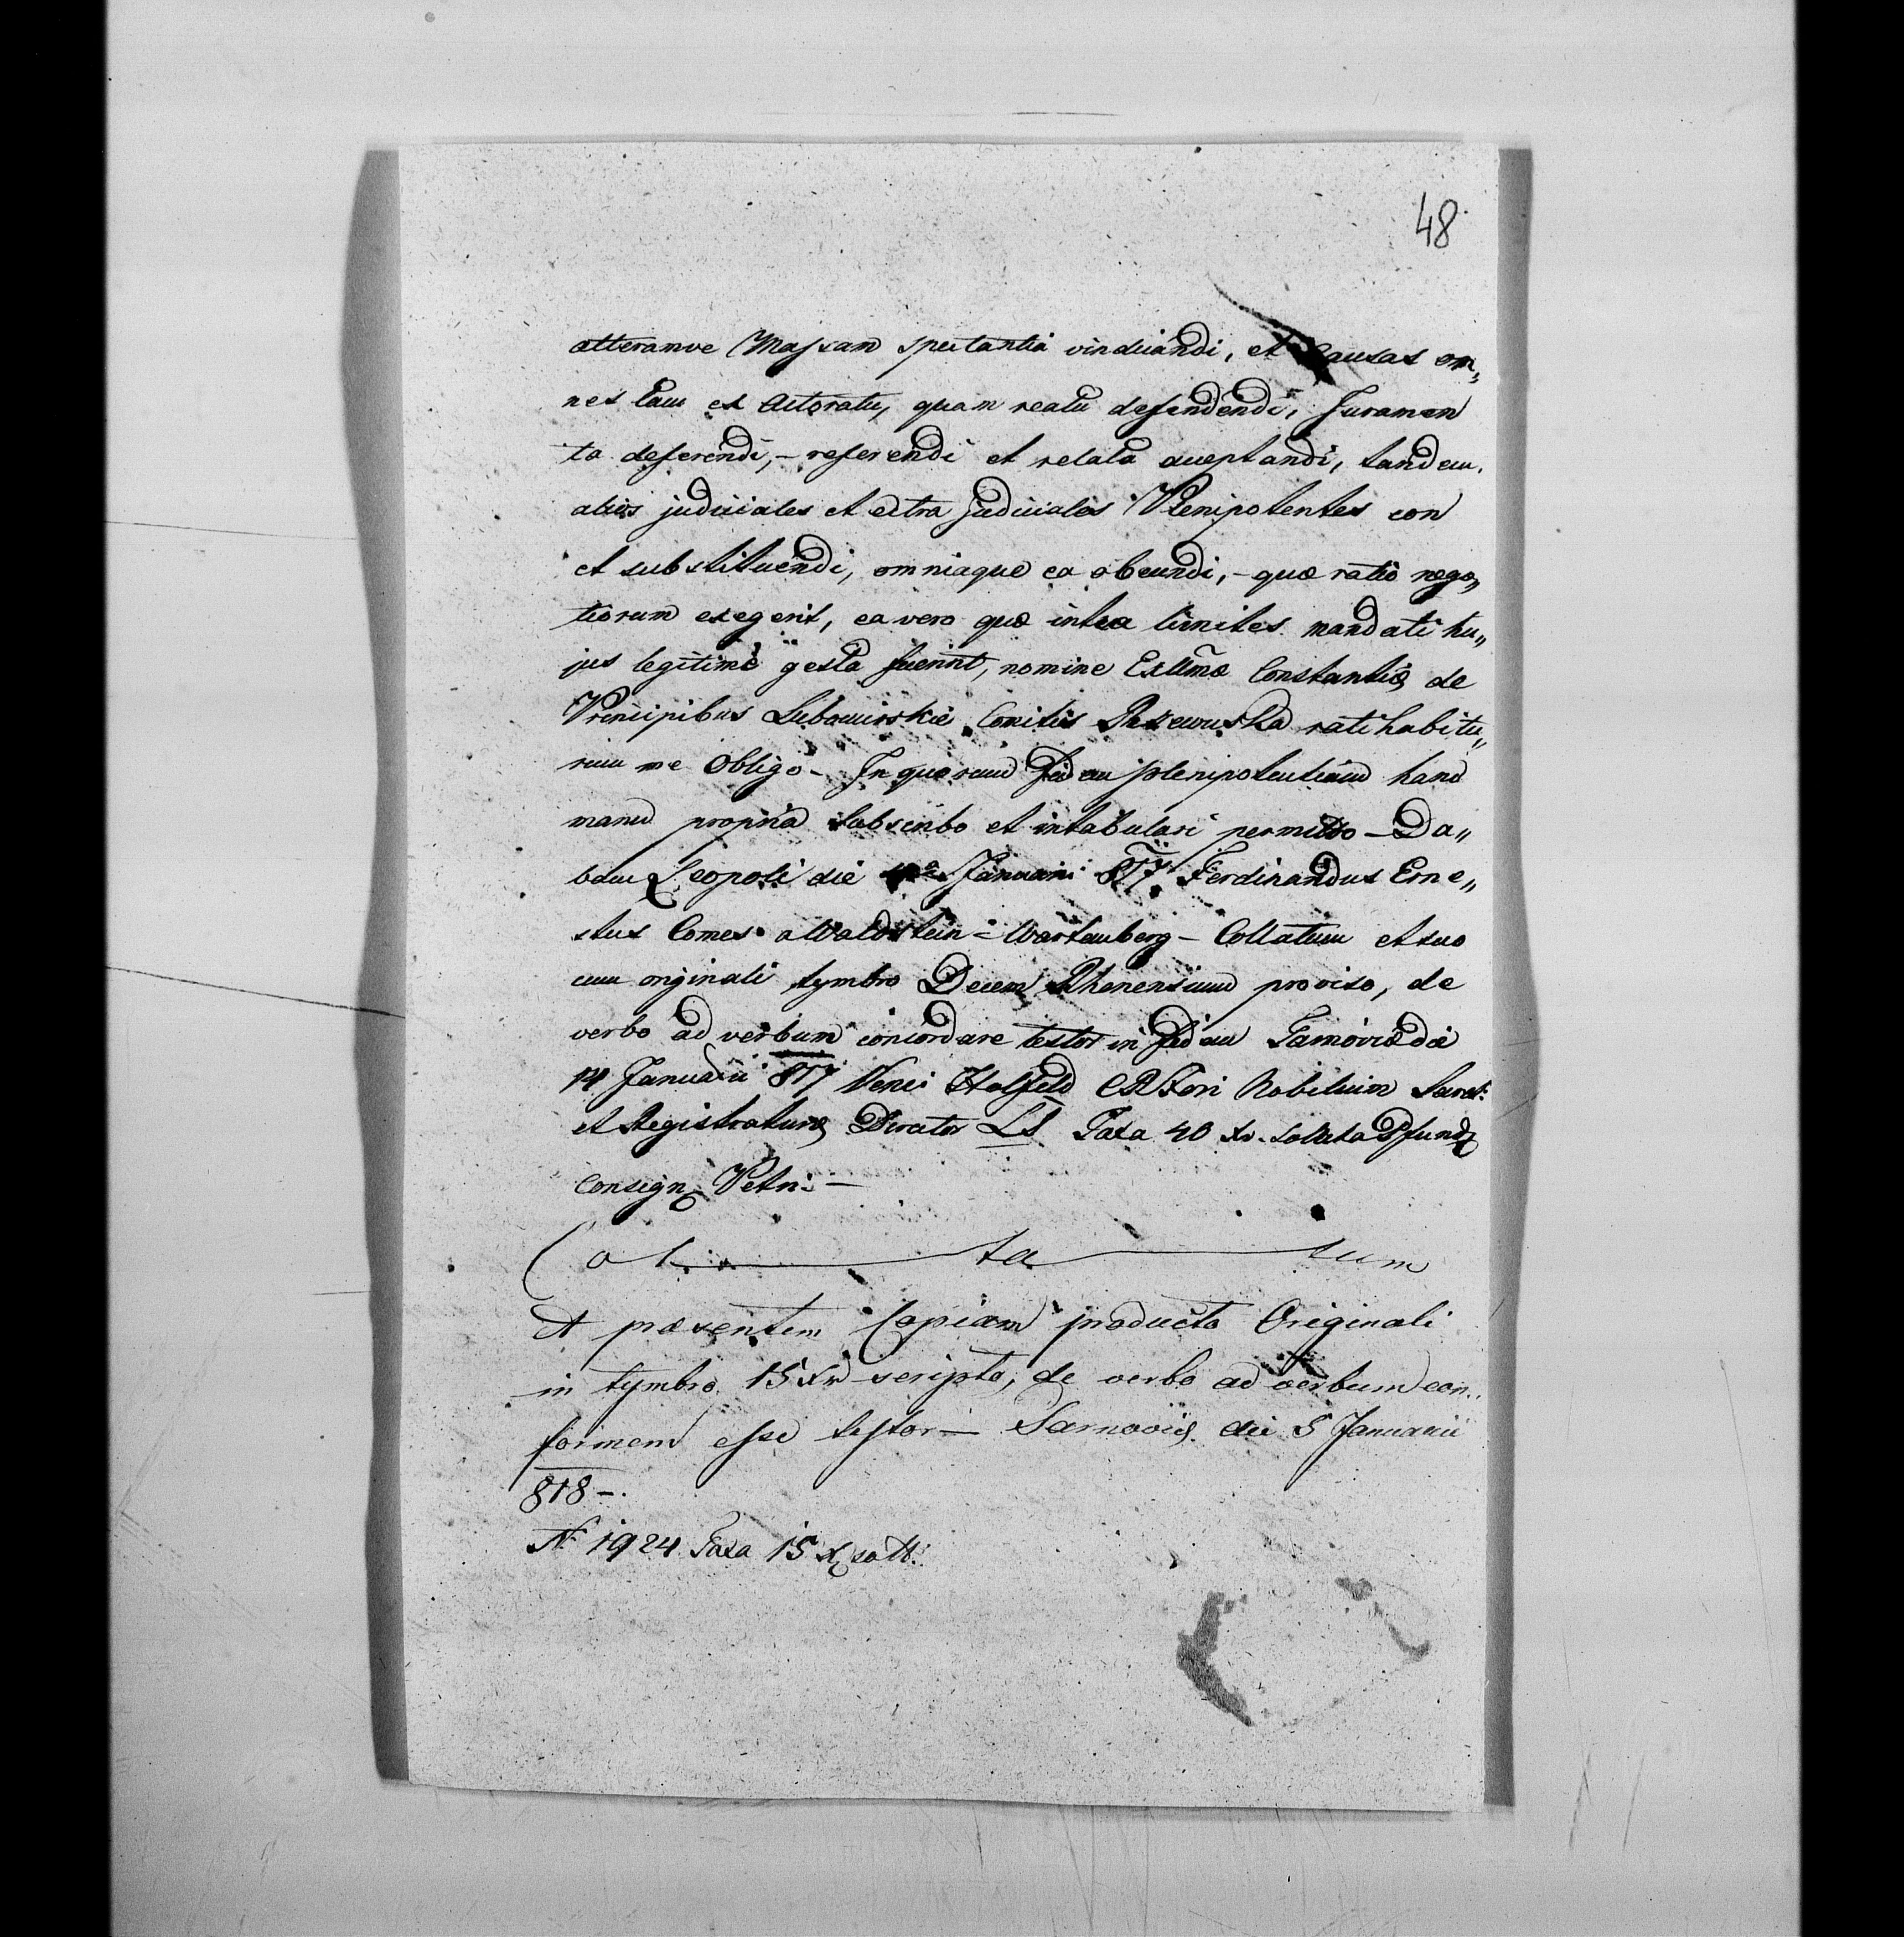 48.
alteramve Massam spectantia vindicandi, et Causas om„
nes tam ex Actoratu, quam reatu defendendi, Juramen
ta deferendi, – referendi et relata acceptandi, tandem
alios judiciales et extra judiciales Plenipotentes con
et substituendi, omniaque ea obeundi, – quæ ratio nego„
tiorum exegerit, ea vero quæ intra limites mandati hu„
jus legitime gesta fuerint, nomine Exllmæ Constantiæ de
Principibus Lubomirskie Comitis Rzewuska ratihabitu„
rum me Obligo – In quorum fidem plenipotentiam hanc
manu propria subscribo et intabulari permitto – Da„
bam Leopoli die Januarii 817 Ferdinandus Erne„
stus Comes a Waldstein = Wartenberg – Collatum et suo
cum originali tymbro Decem Rhenensium proviso, de
verbo ad verbum concordare testor in fidem Tarnoviæ die
14 Januarii 817 Holfeld CR Fori Nobilium
et Registraturæ Director LS Taxa 40 xr. soluta
Consign Petri –
Col ta tum
Et præsentem Copiam producto Originali
in tymbro 15 xr scripto, de verbo ad verbum con„
formem esse testor – Tarnoviæ die 5 Januarii
818 –.
N 1924 Taxa 15 x solt.